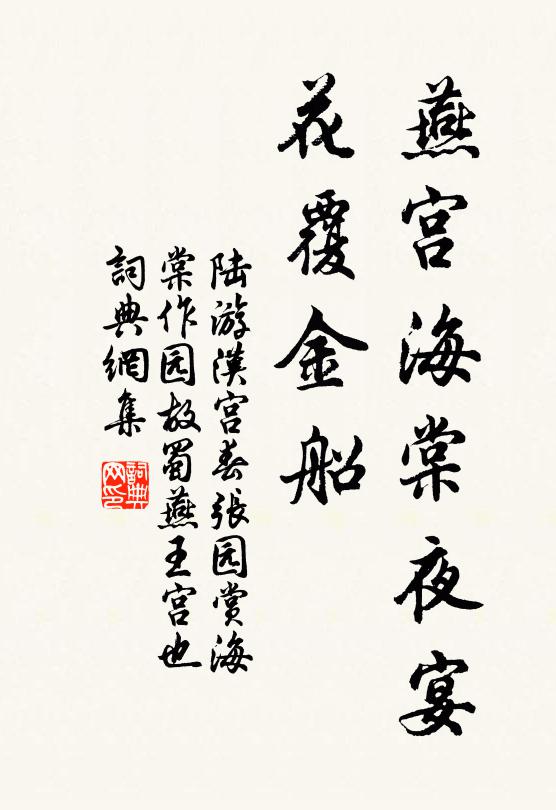 燕宫海棠夜宴
花覆金船
陆游漢宫春張园赏海
棠作园故蜀燕王宫也
詞典網集
詞典
网印